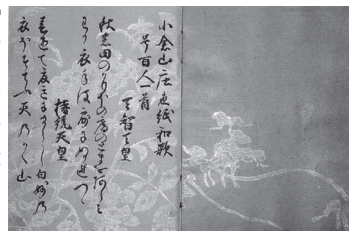 小倉山庄色紙和歌
号百人一首
天智天皇
秋の田のかりほの庵のとまをあらみ
わか衣手は露にぬれつゝ
持統天皇
春過て夏きにけらし白妙乃
衣ほすてふ天乃かく山